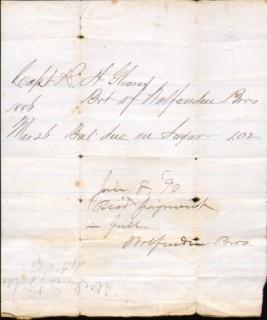 Capt R. H.
Bot of Wolfenden Bros
1886
Mar 26 Bal due on Sugar 1.02
Jan 8 '90
Rec'd payment
in full
Wolfenden Bros.